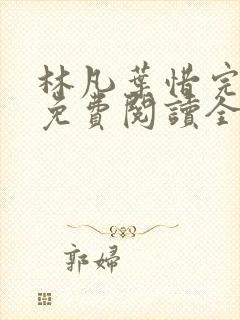 林凡葉惜完
免費閱讀全
郭婦